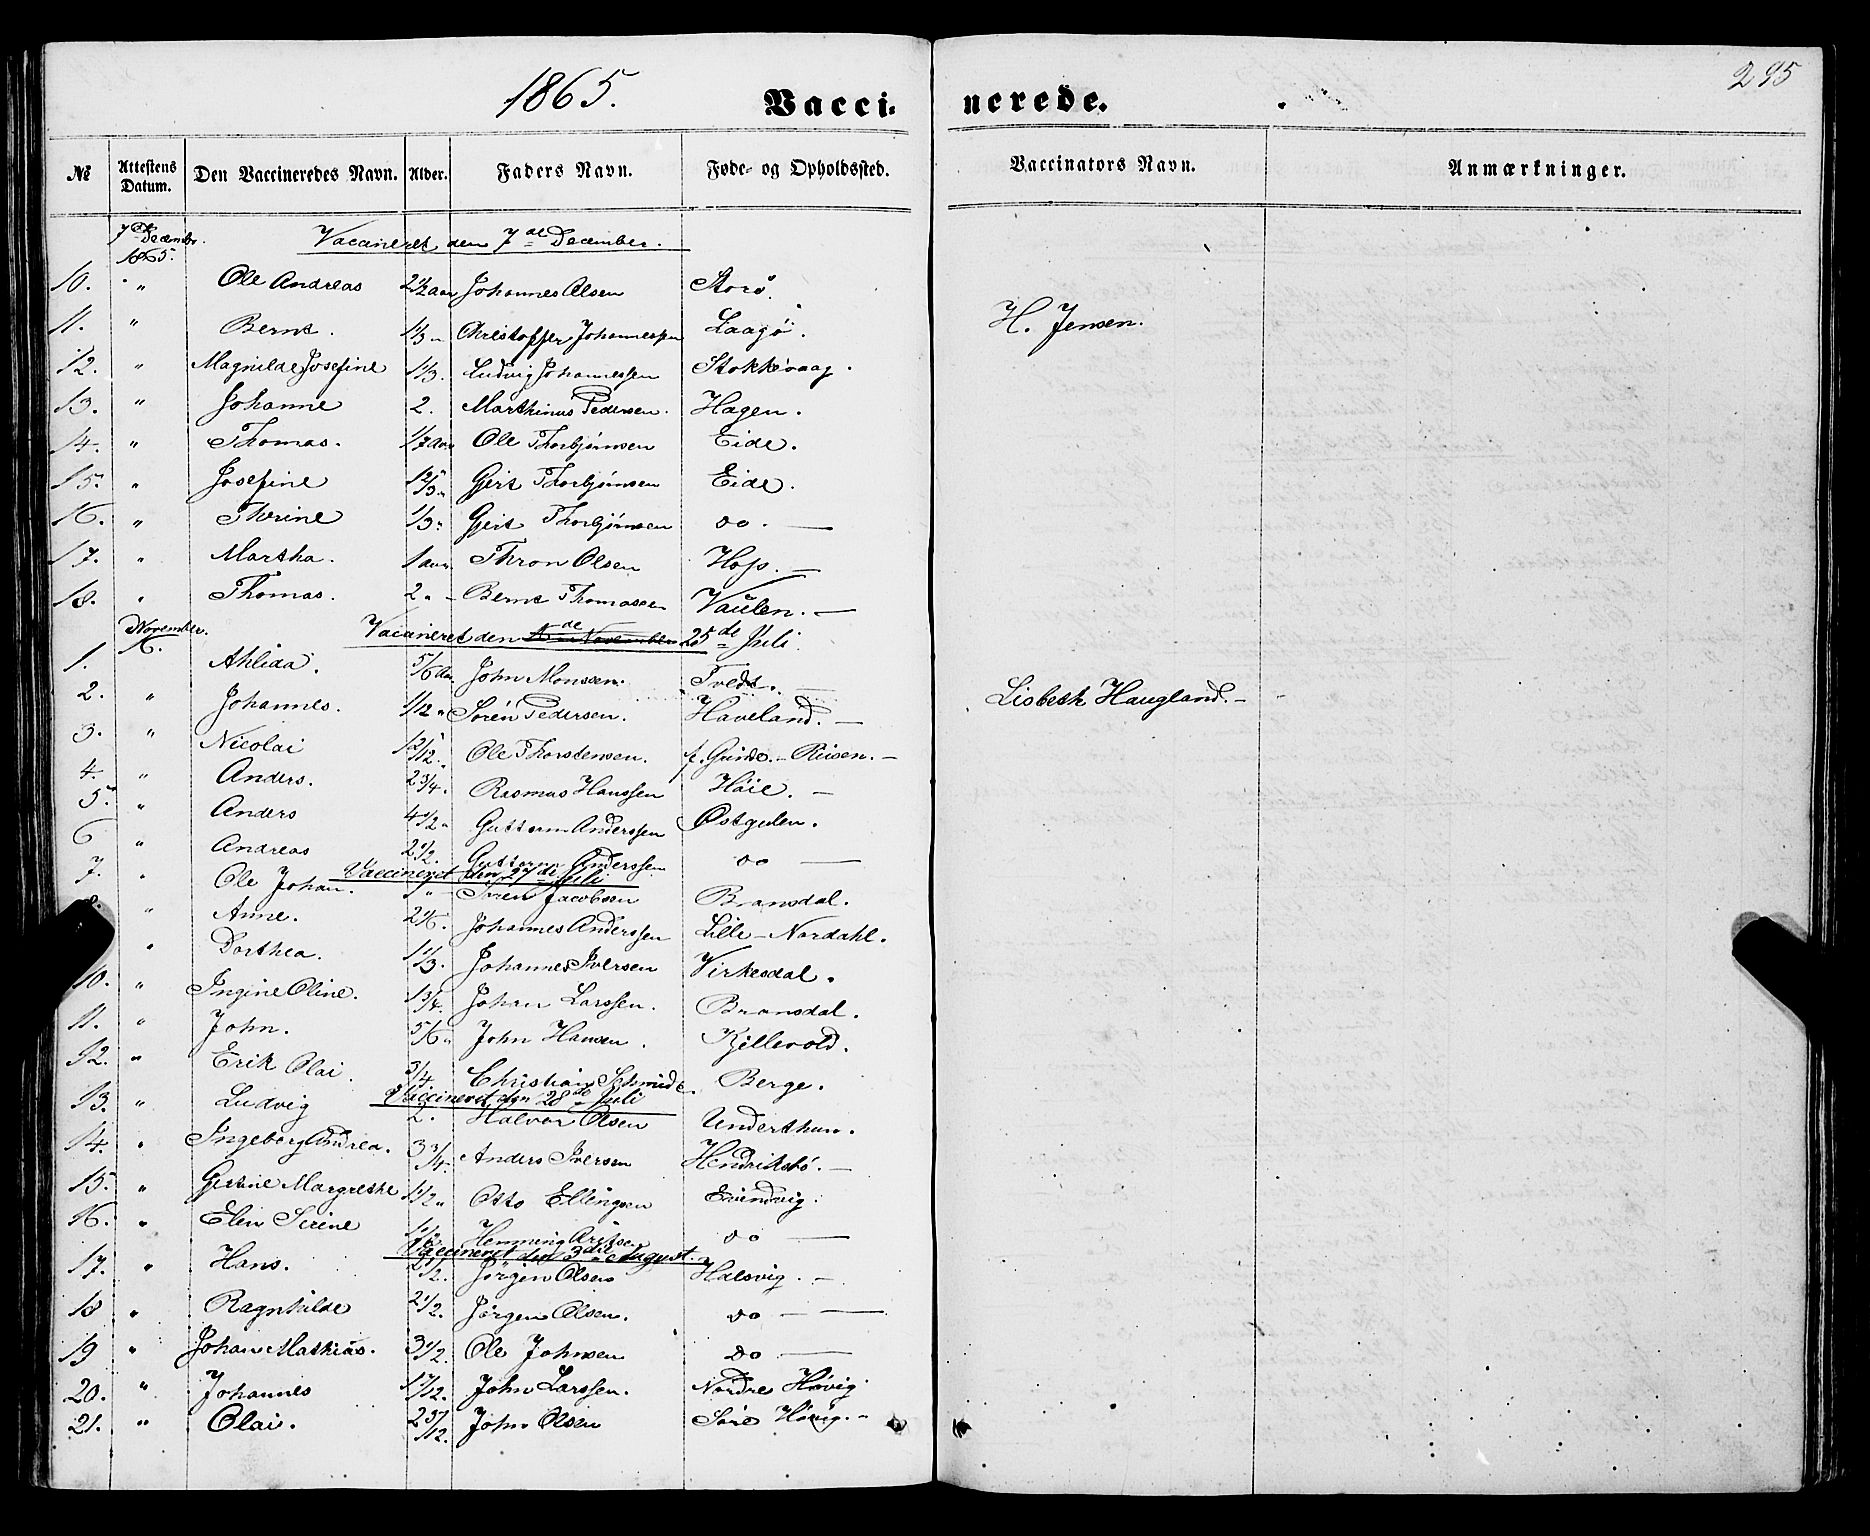 1865.
Vaccinerede.
295
№ Attestens Datum. Den Vaccineredes Navn. Alder. Faders Navn. Føde- og Opholdssted. Vaccinators Navn. Anmærkninger.
7de December 1865. Vaccineret den 7de December.
10. " Ole Andreas 2 1/2 aar Johannes Olsen Storø.
11. " Bernt. 1 1/3 " Christoffer Johannessen Laagø. H. Jensen.
12. " Magnilde Josefine 1 1/3. Ludvig Johannessen Stokkevaag.
13. " Johanne 2. Marthinus Pedersen. Hagen.
14. " Thomas. 1/7 aar Ole Thorbjørnsen Eide.
15. " Josefine Gert Thorbjørnsen Eide.
16. " Therine 1/3 " Gert Thorbjørnsen do. —
17. " Martha. 1 aar Thron Olsen Hop. —
18. " Thomas. 2 " Bernt Thomassen Vaülen. —
November 16. Vaccineret den 25de Juli.
1. Ahlida. 5/6 aar John Monssen. Tvedt. —
2. " Johannes. 1/12 " Søren Pedersen. Haveland. — Lisbeth Haugland. —
3. " Nicolai Ole Thorstensen. f. Grinde. — Risen. —
4. " Anders. 2 3/4. Rasmus Hanssen Høie. —
5. " Anders 4 1/2 " Guttorm Anderssen Østgulen.
6 " Andreas 2 1/2. Guttorm Anderssen do —
Vaccineret den 27de Juli
7. " Ole Johan. " Søren Jacobsen Bransdal.
8. " Anne. 2 1/6. Johannes Anderssen Lille - Nordahl.
" Dorthea. 1 1/3. Johannes Iversen Virkesdal.
10. " Ingine Oline. 1 3/4. Johan Larssen. Bransdal.
11. " John. 5/6 " John Hansen. Kjellevold.
12. " Erik Olai. 3/4 Christian Schmidt. Berge.
Vaccineret den 28de Juli
13. " Ludvig 2. Halvor Olsen Underthun.
14. " Ingeborg Andrea. 3 3/4. Anders Iversen Hendriksbø. —
15. " Gertine Margrethe 1 1/2 " Otto Ellingsen Evindvig.
16. " Elen Serine Henming do —
Vaccineret den 3die August.
17. " Hans. 2 1/2. Jørgen Olsen Halsvig. —
18 " Ragnhilde 2 1/2. Jørgen Olsen. do —
19 " Johan Mathias. 3 1/2. Ole Johnsen do —
20. " Johannes 1 7/12. John Larssen. Nordre Høvig.
21. " Olai. 2 3/12. John Olsen Søre Høvig. —